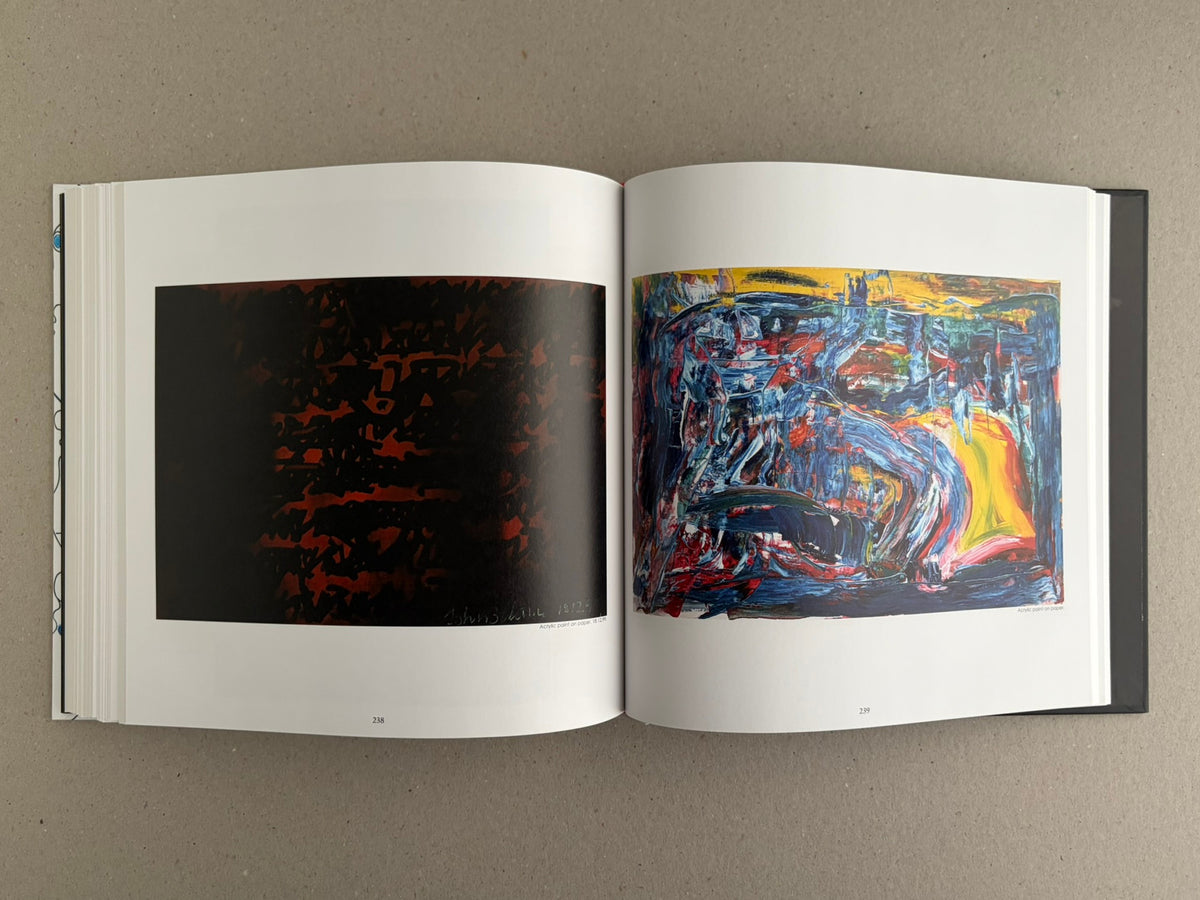 18.12.
Acrylic paint on paper, 18.12.91
238
Acrylic paint on paper
239